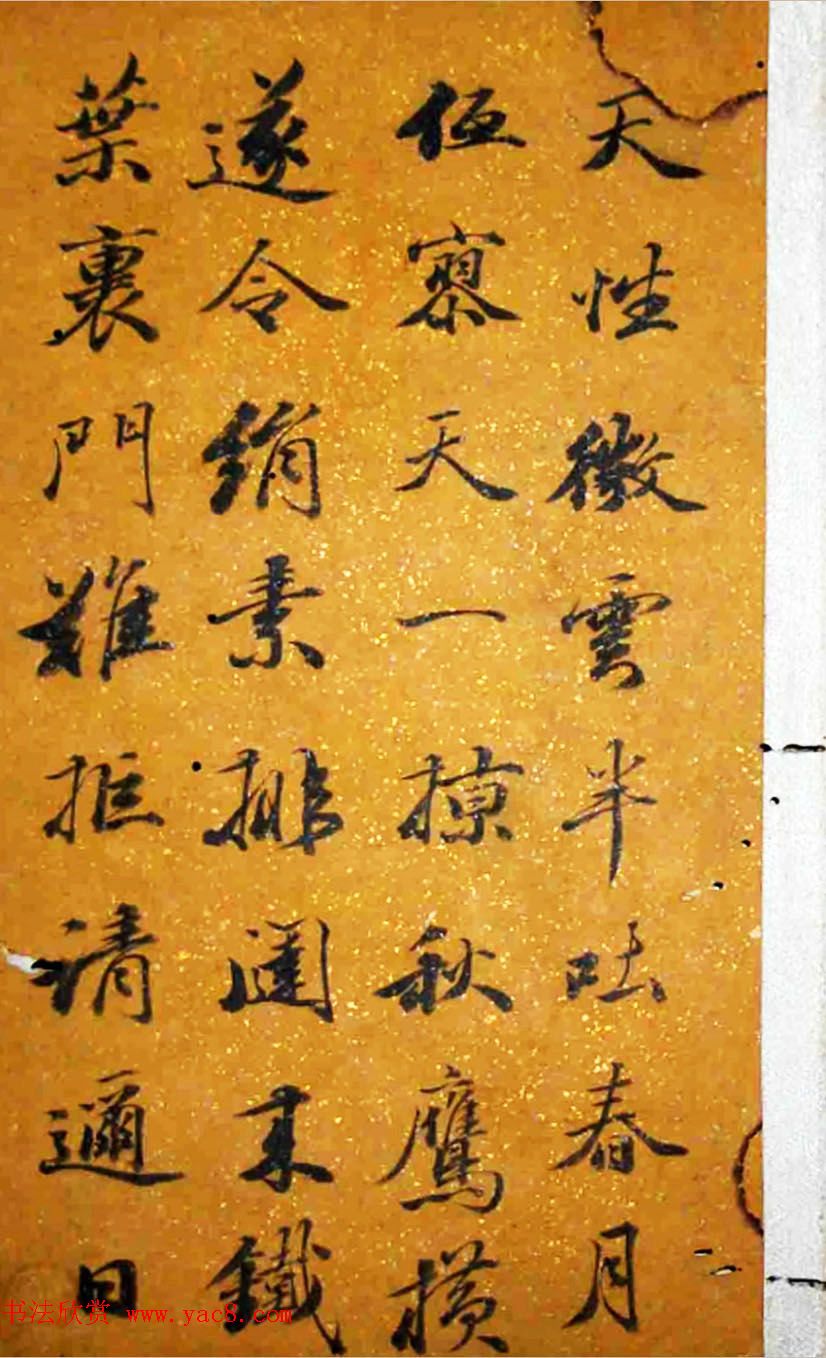 天性微雲半吐春月
低寥天一掠秋鷹橫
遂令絹素排闥來鐵
葉裹門難拒請邇日
书法欣赏 www.yac8.com